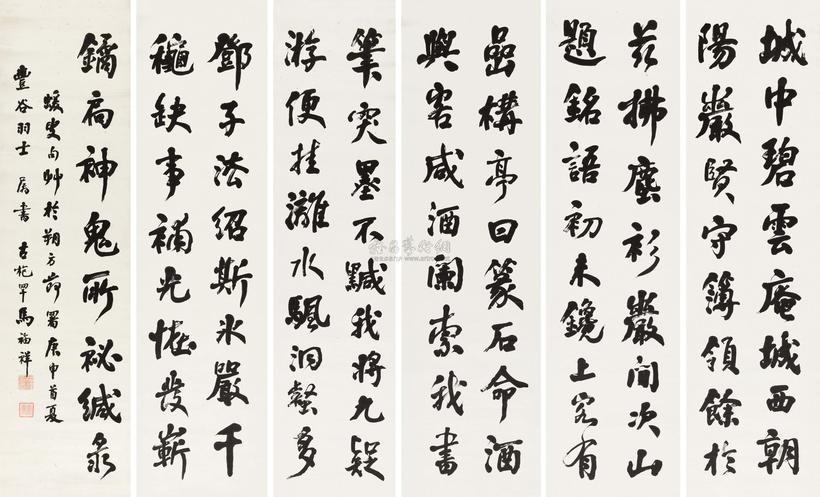 城中碧雲庵城西朝
陽巖賢守簿領餘於
茲拂塵衫巖間次山
題銘語初未鑱上客有
嵒構亭曰篆石命酒
與客咸酒闌索我書
筆突墨不黬我將九疑
游便挂灕水颿洄螯多
鄧子法紹斯冰嚴千
龝缺事補光怪發嶄
鐍扃神鬼所祕緘泉
蝯叟句艸於朔方節署庚申首夏
豐谷羽士 屬書 古枹罕馬福祥